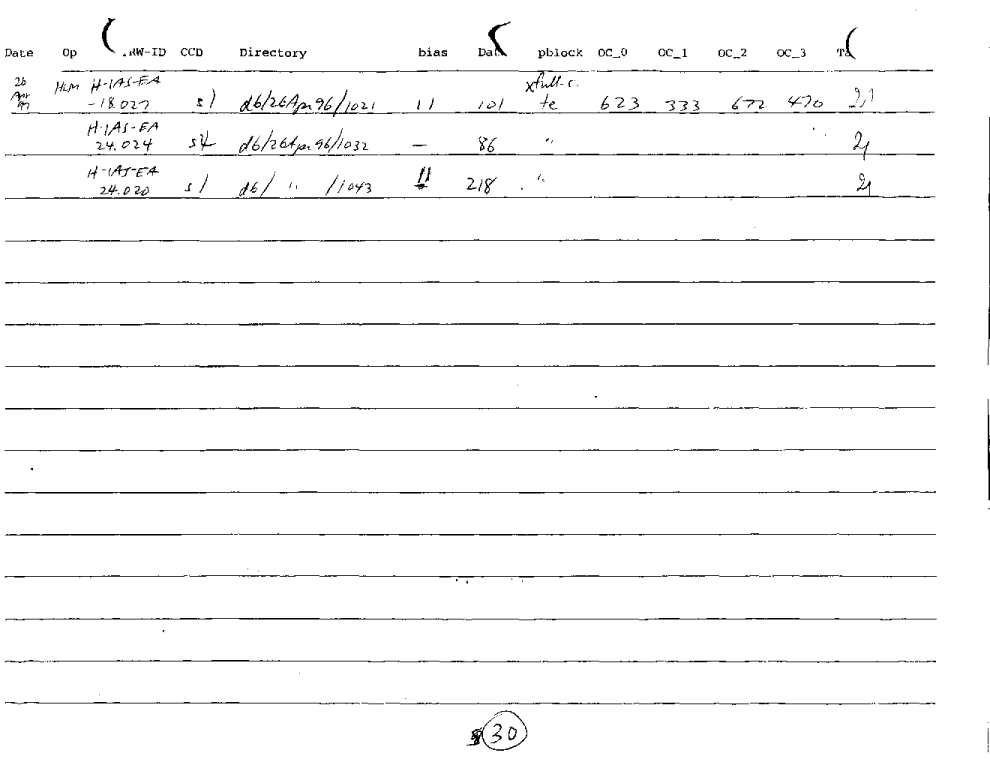 Date Op .RW-ID CCD Directory bias Dat pblock OC_0 OC_1 OC_2 OC_3
26 HLM H-IAS-EA xfull-c.
Apr -18.027 s1 d6/26Apr96/1021 11 101 te 623 333 672 470
H-IAS-EA
24.024 s4 d6/26Apr96/1032 — 86 "
H-IAS-EA
24.020 s1 d6/ " /1043 11 218 "
30